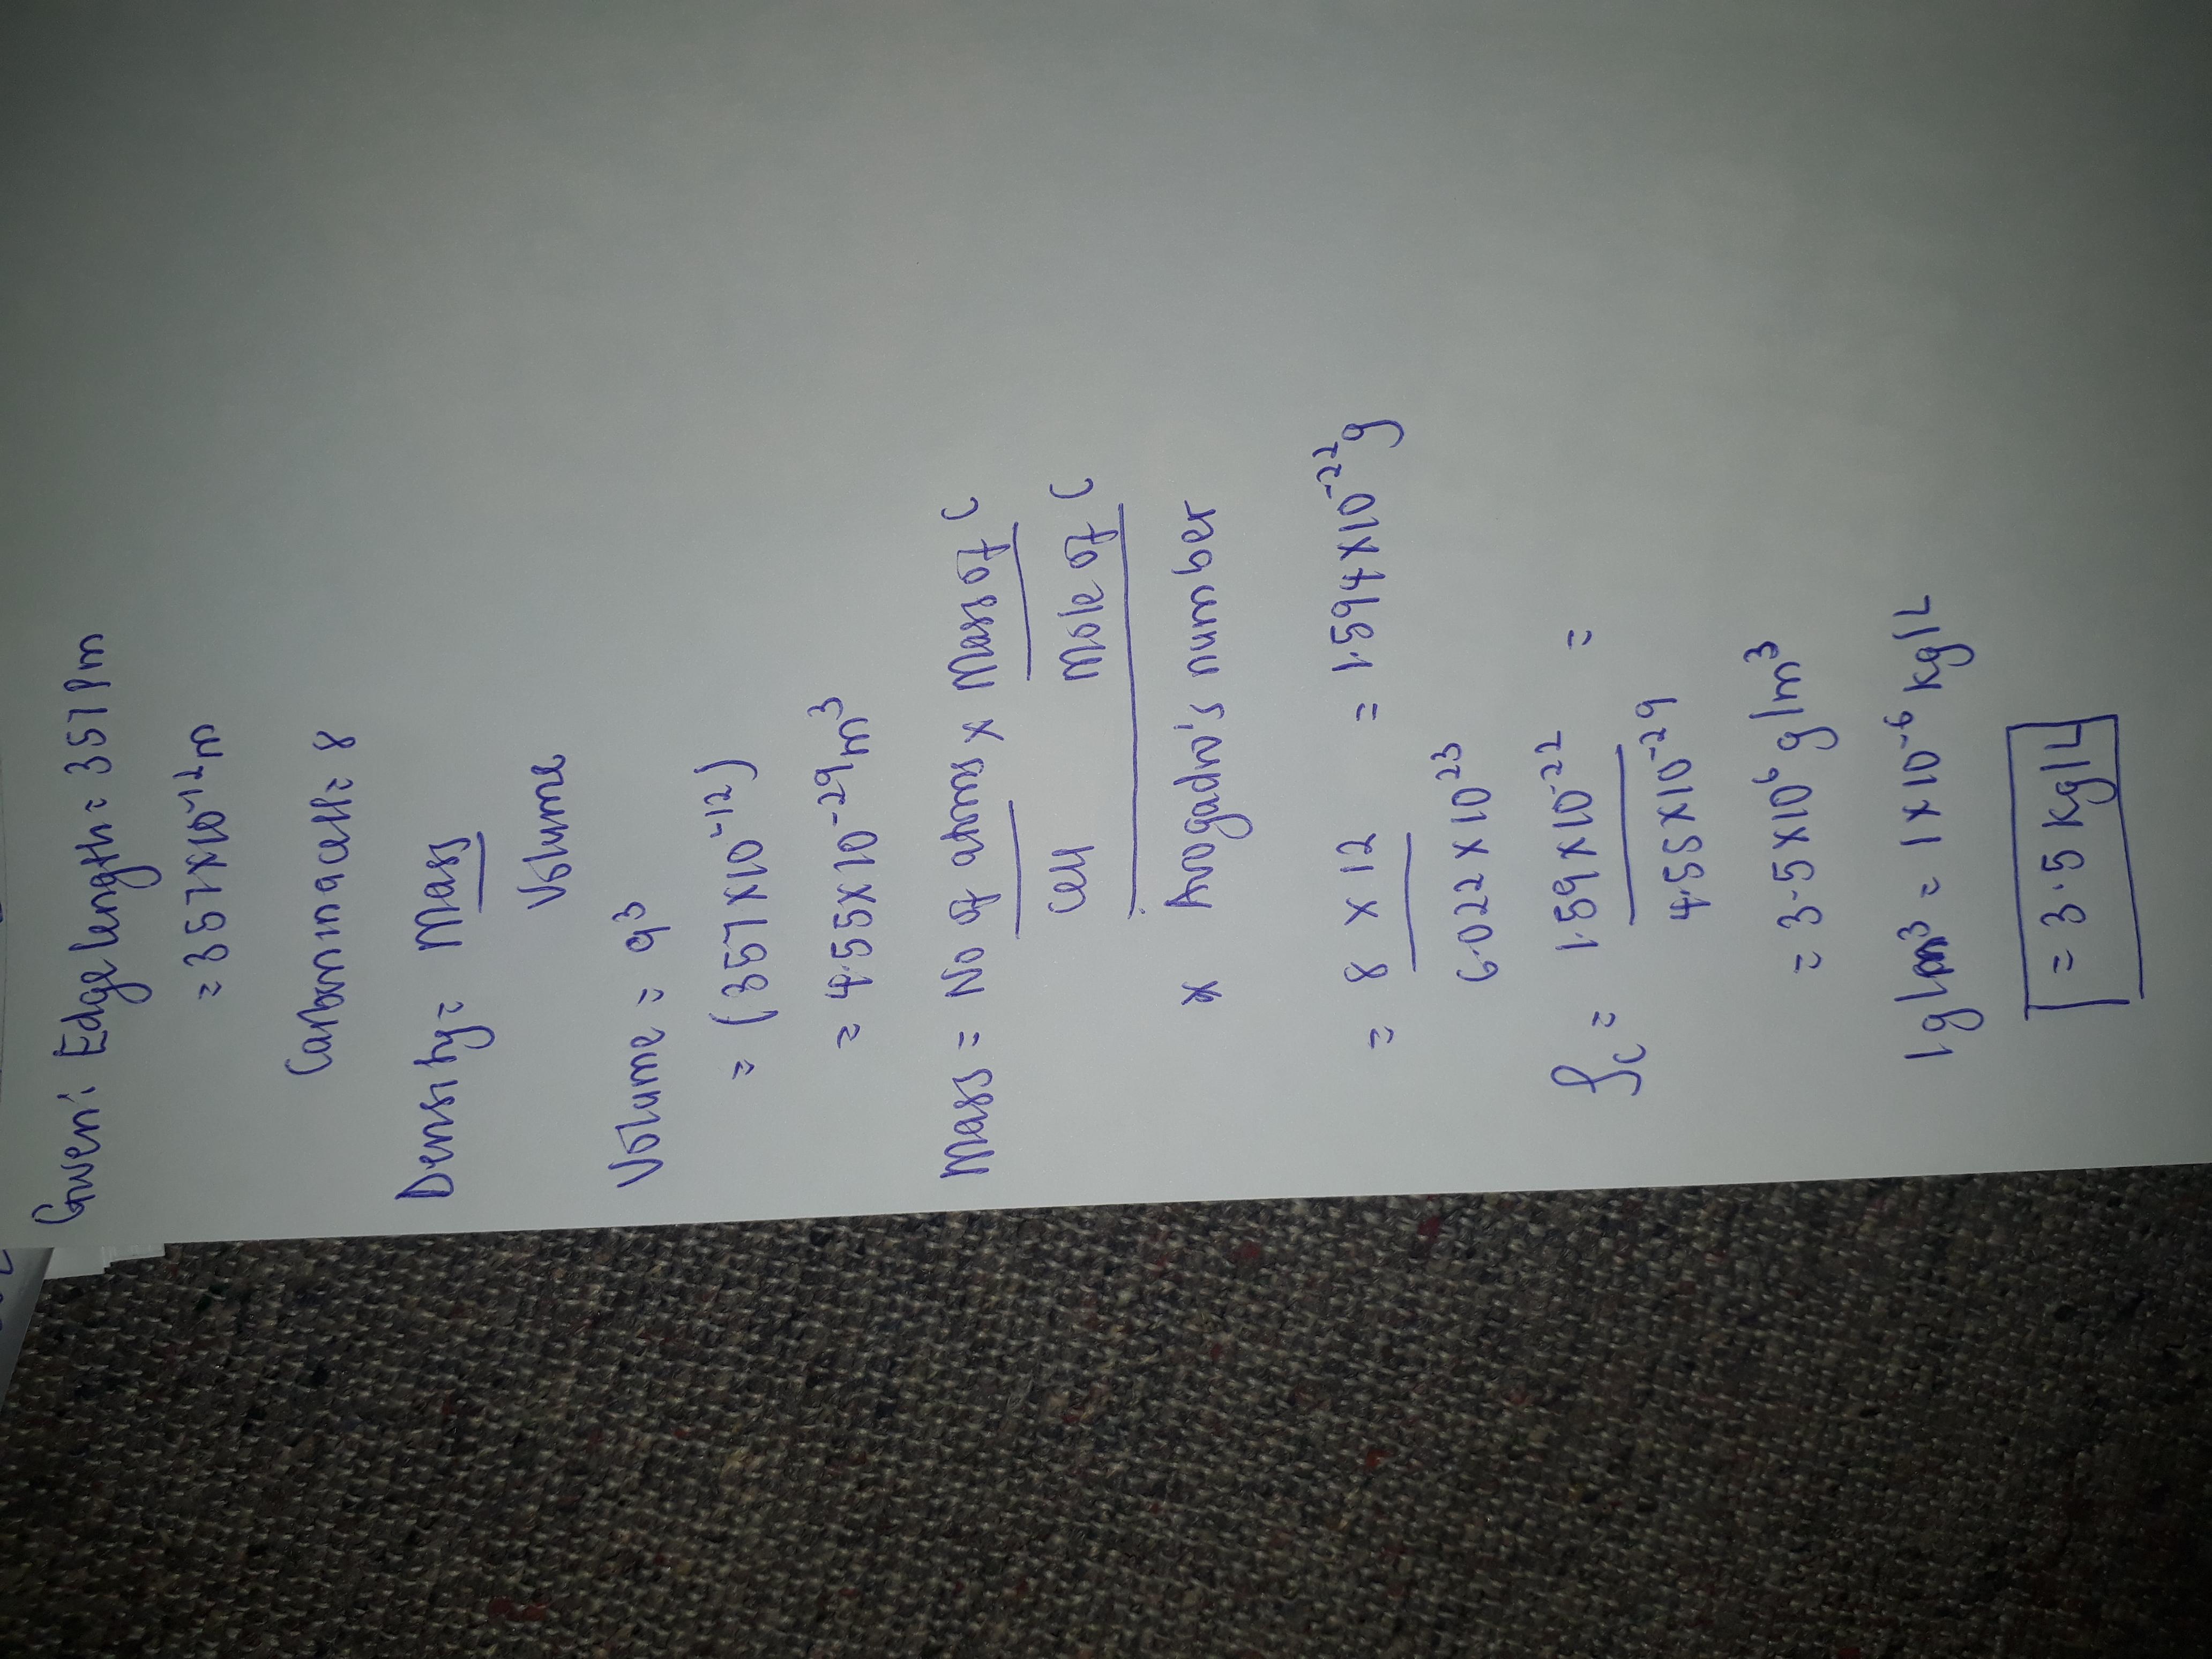 Given: Edge length = 357 Pm
= 357×10⁻¹²m
Carbon in a cell = 8
Density = Mass
Volume
Volume = a³
= (357×10⁻¹²)
= 4.55×10⁻²⁹m³
Mass = No of atoms × Mass of C
Cell Mole of C
× Avogadro's number
= 8 × 12 = 1.594×10⁻²²g
6.022×10²³
ρc = 1.59×10⁻²² =
4.55×10⁻²⁹
= 3.5×10⁶ g/m³
1 g/m³ = 1×10⁻⁶ kg/L
= 3.5 kg/L